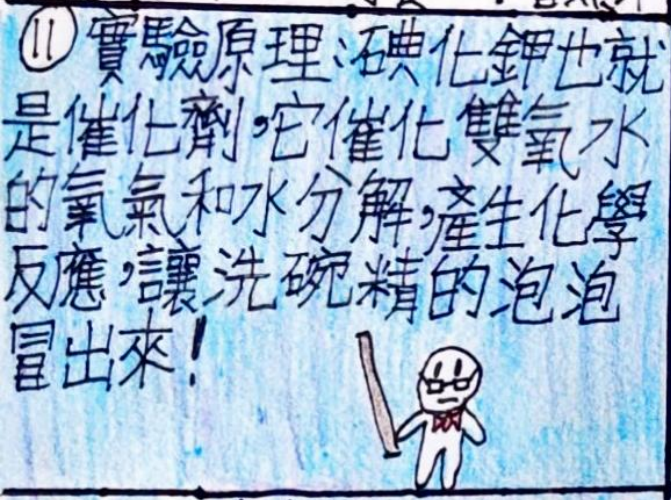 ⑪實驗原理:碘化鉀也就
是催化劑,它催化雙氧水
的氧氣和水分解,產生化學
反應,讓洗碗精的泡泡
冒出來!